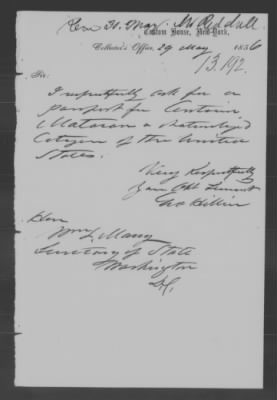 30. May. McReddall
Custom House, New-York,
Collector's Office, 29 May 1856
13.192.
Sir:
I respectfully ask for a
passport for Antonio
Matoran a naturalized
Citizen of the United
States.
Very Respectfully
Your Obt Servant
Hon
Wm L. Marcy
Secretary of State
Washington
D.C.